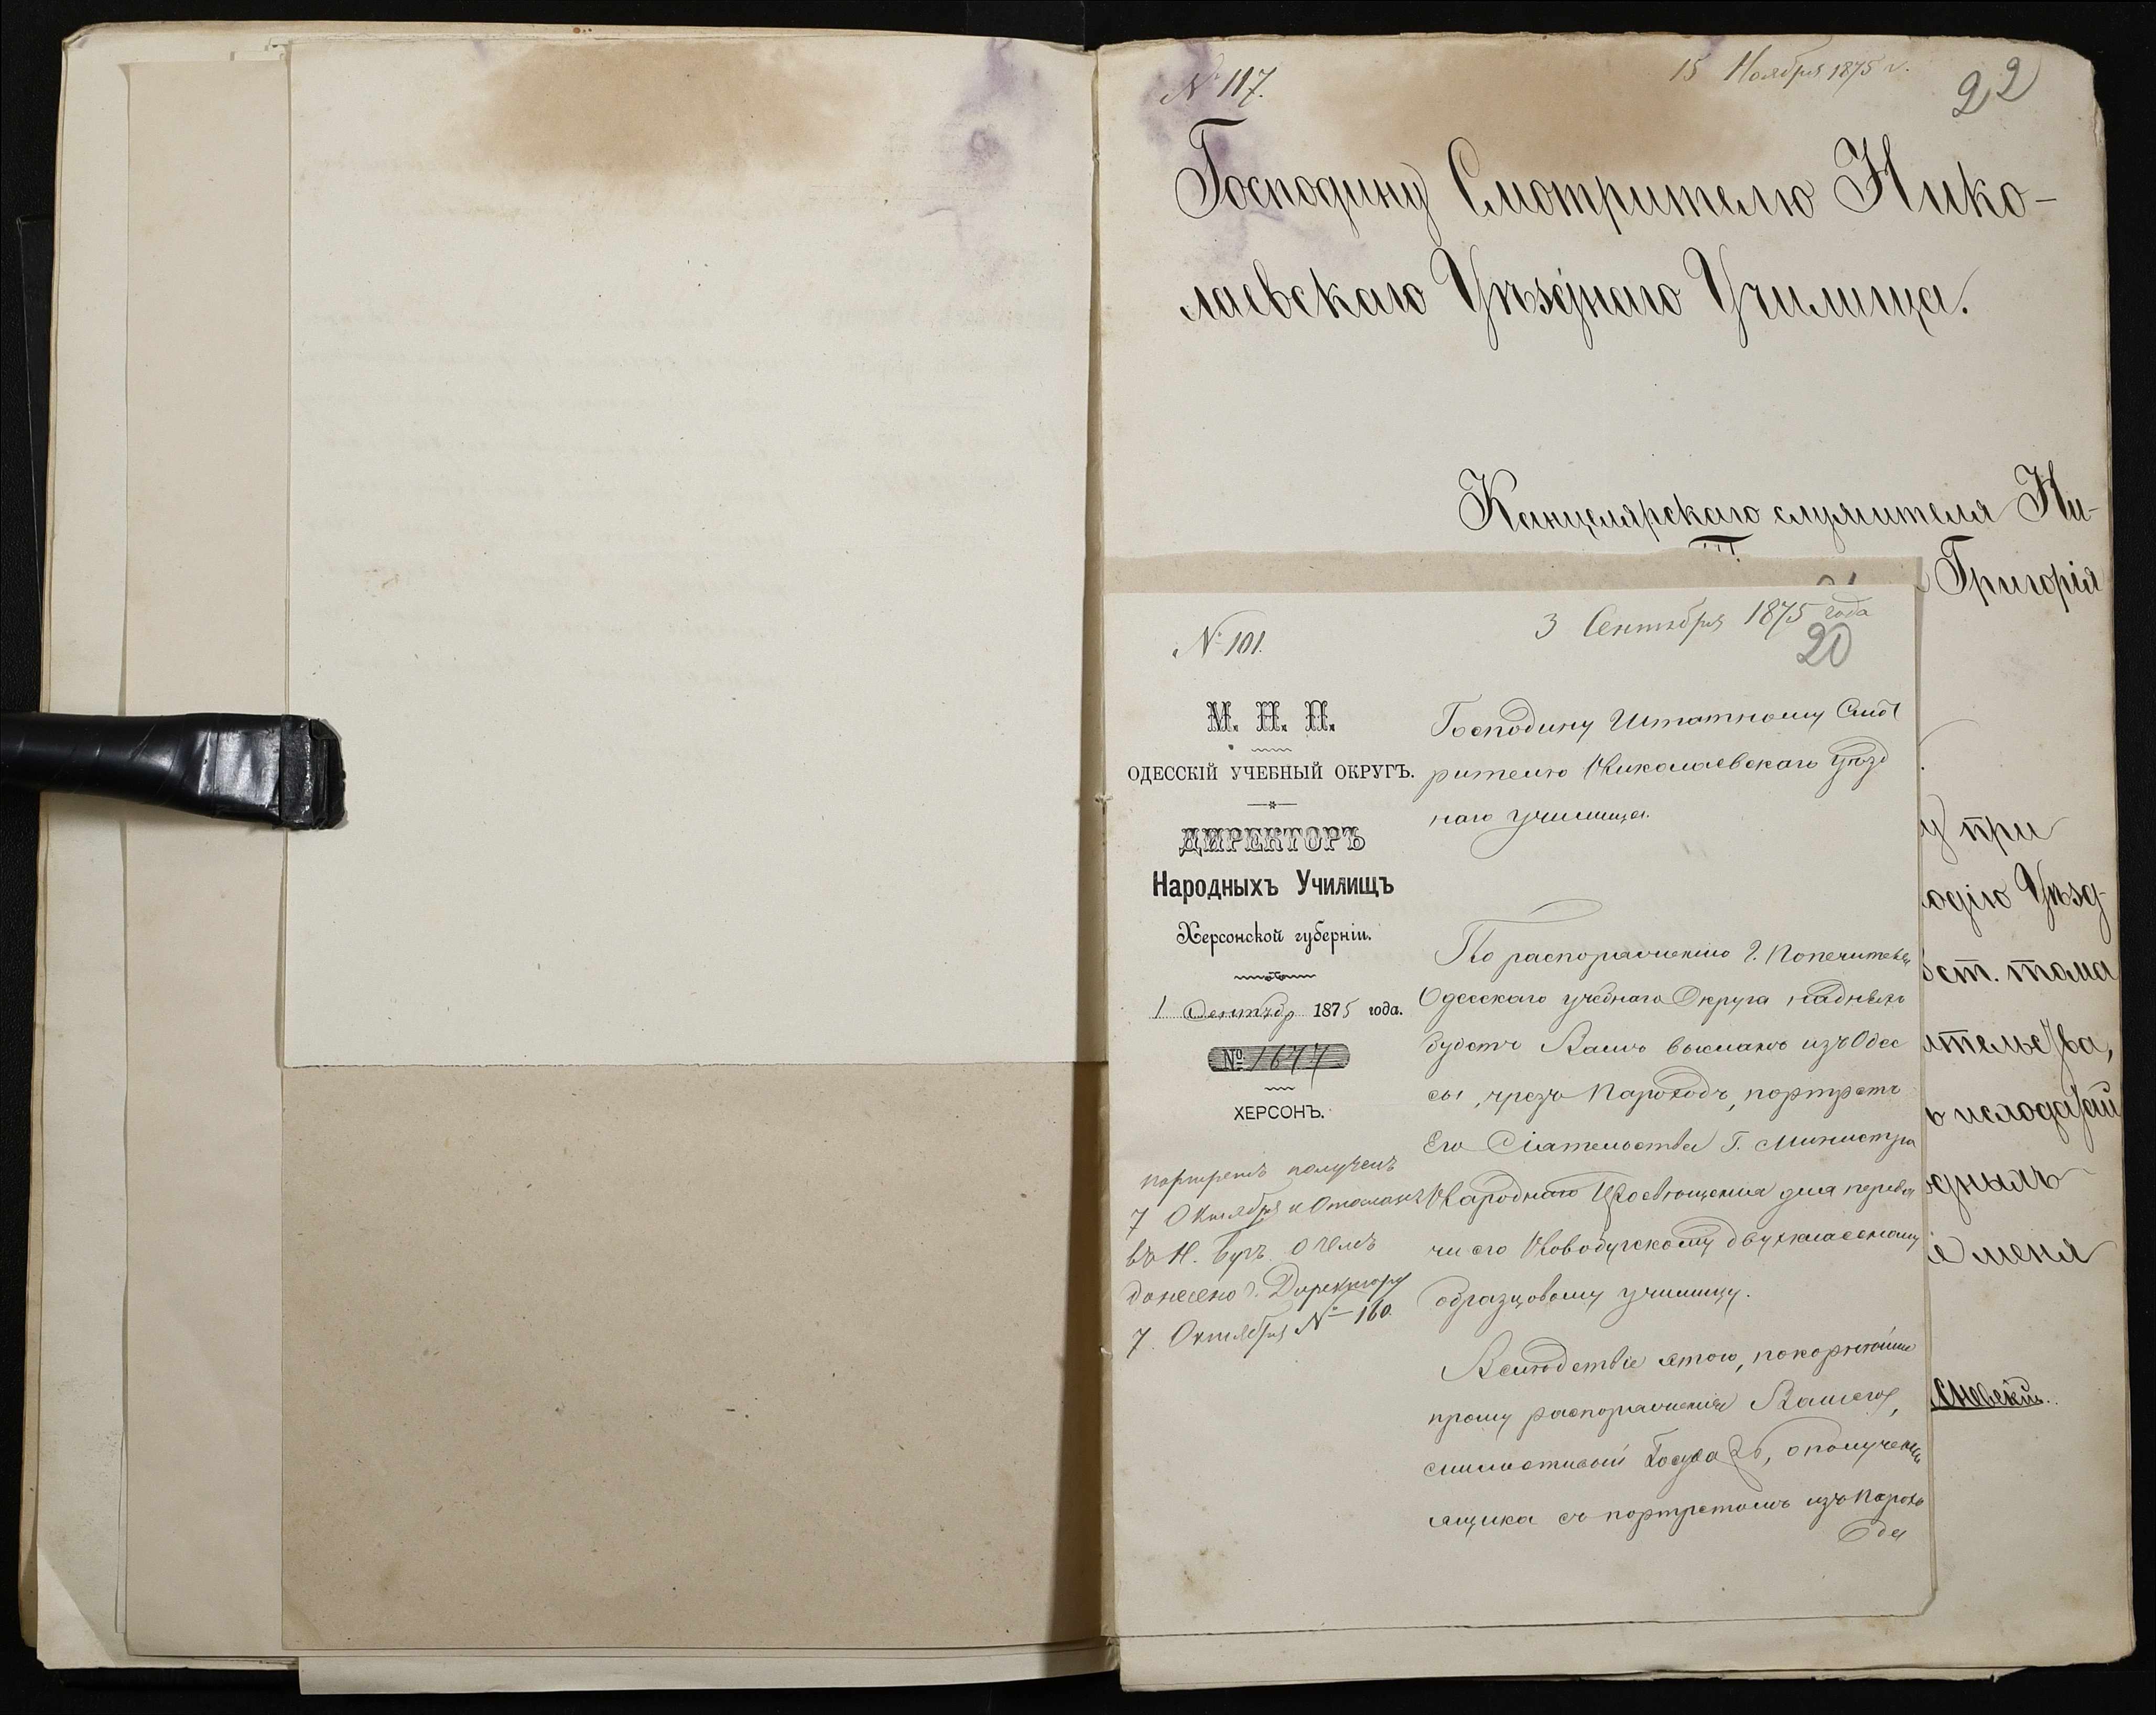 № 117.
15 Ноября 1875 г.
22
Господину Смотрителю Нико-
лаевскаго Уѣзднаго Училища.
Канцелярскаго служителя Ни-
Григорія
№ 101.
3 Сентября 1875 года
20
М. Н. П.
ОДЕССКІЙ УЧЕБНЫЙ ОКРУГЪ.
ДИРЕКТОРЪ
Народныхъ Училищъ
Херсонской губерніи.
1 Сентябр 1875 года.
№ 1677
ХЕРСОНЪ.
портретъ полученъ
7 Октября и Отосланъ
въ Н. Бугъ. О чемъ
донесено г. Директору
7 Октября № 160.
Господину Штатному Смот
рителю Николаевскаго Уѣзд
наго училища.
По распоряженію Г. Попечителя
Одесскаго учебнаго Округа надняхъ
будетъ Вамъ высланъ изъ Одес
сы, чрезъ Пароходъ, портретъ
Его Сіятельства Г. Министра
Народнаго Просвѣщенія для переда
чи его Новобугскому двухклассному
образцовому училищу.
Вслѣдствіе этого, покорнѣйше
прошу распоряженія Вашего,
милостивый Государь, о полученіи
ящика съ портретомъ изъ Парохо
да
у при
одію Уѣзд-
ст. тома
ительства,
ь исходатай
дныхъ
меня